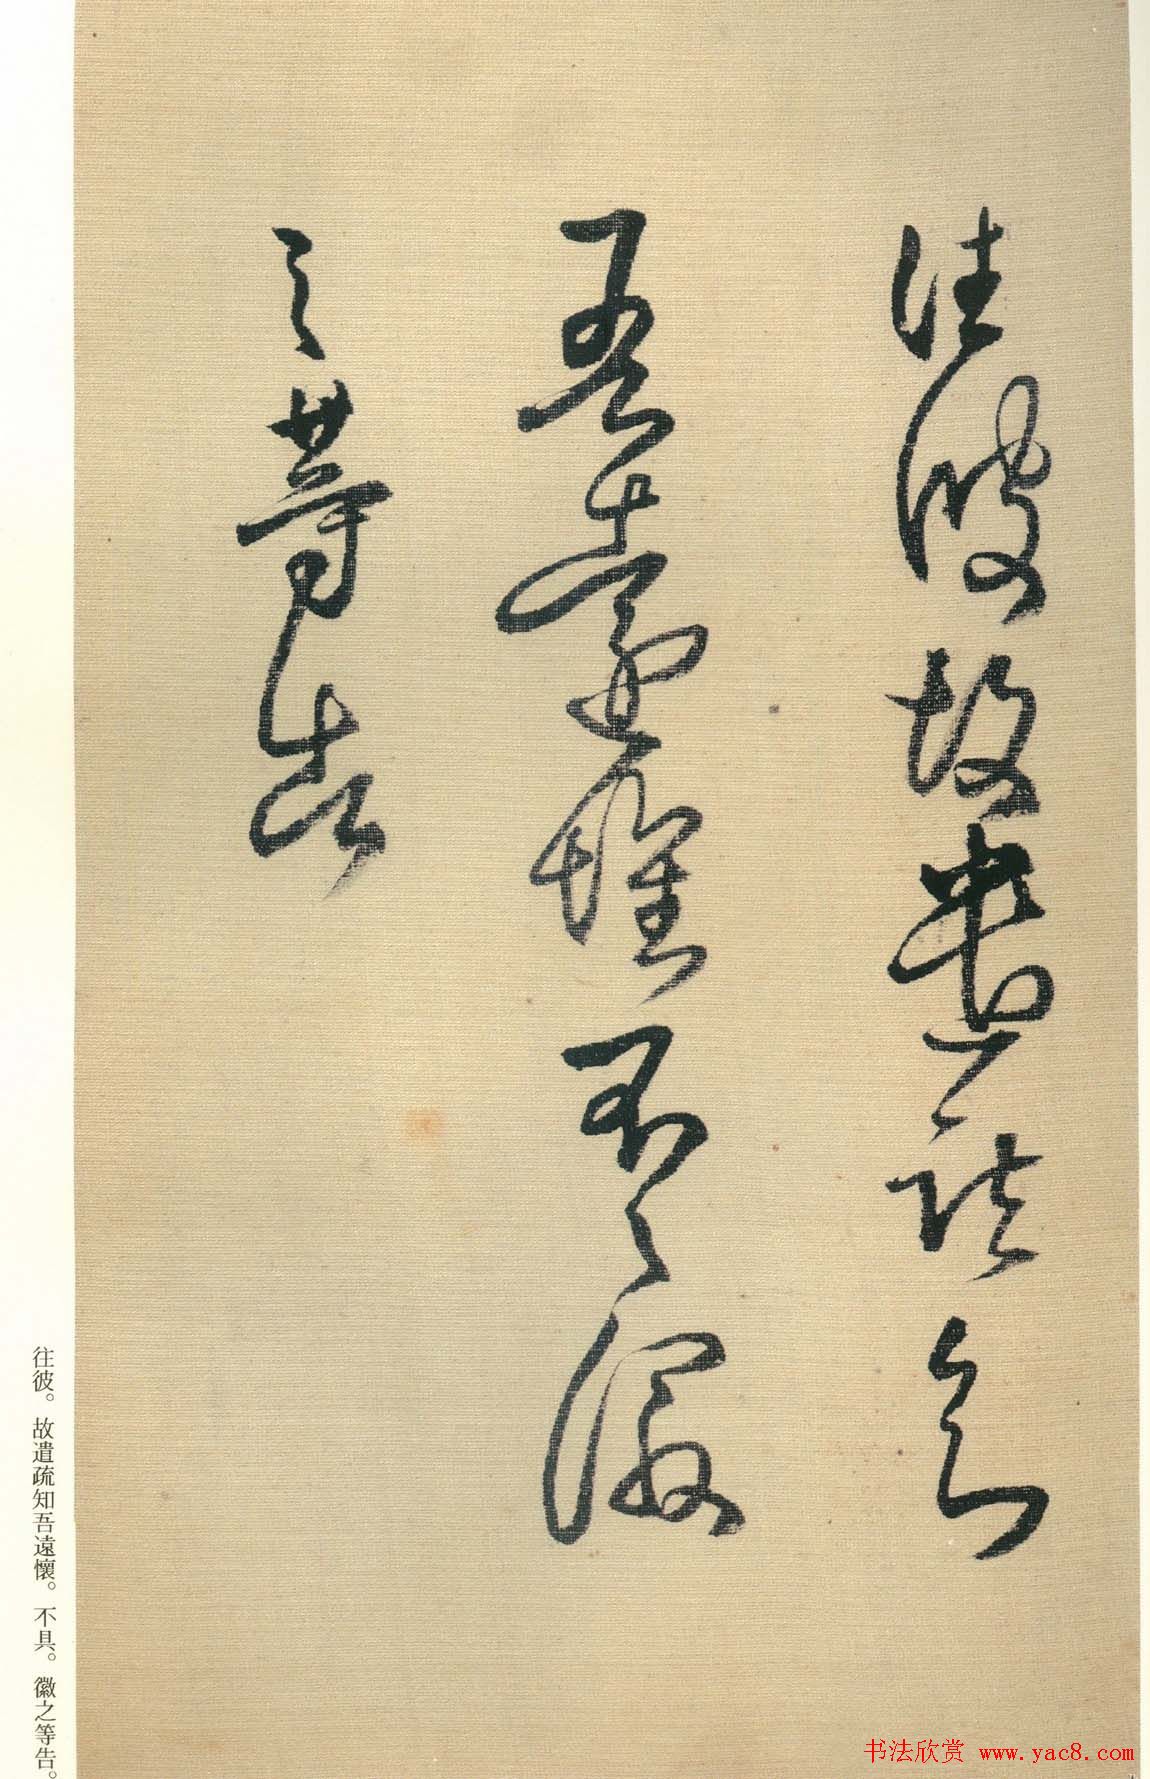 往彼故遣疏知
吾遠懷不具徽
之等告
往彼。故遣疏知吾遠懷。不具。徽之等告。
书法欣赏 www.yac8.com